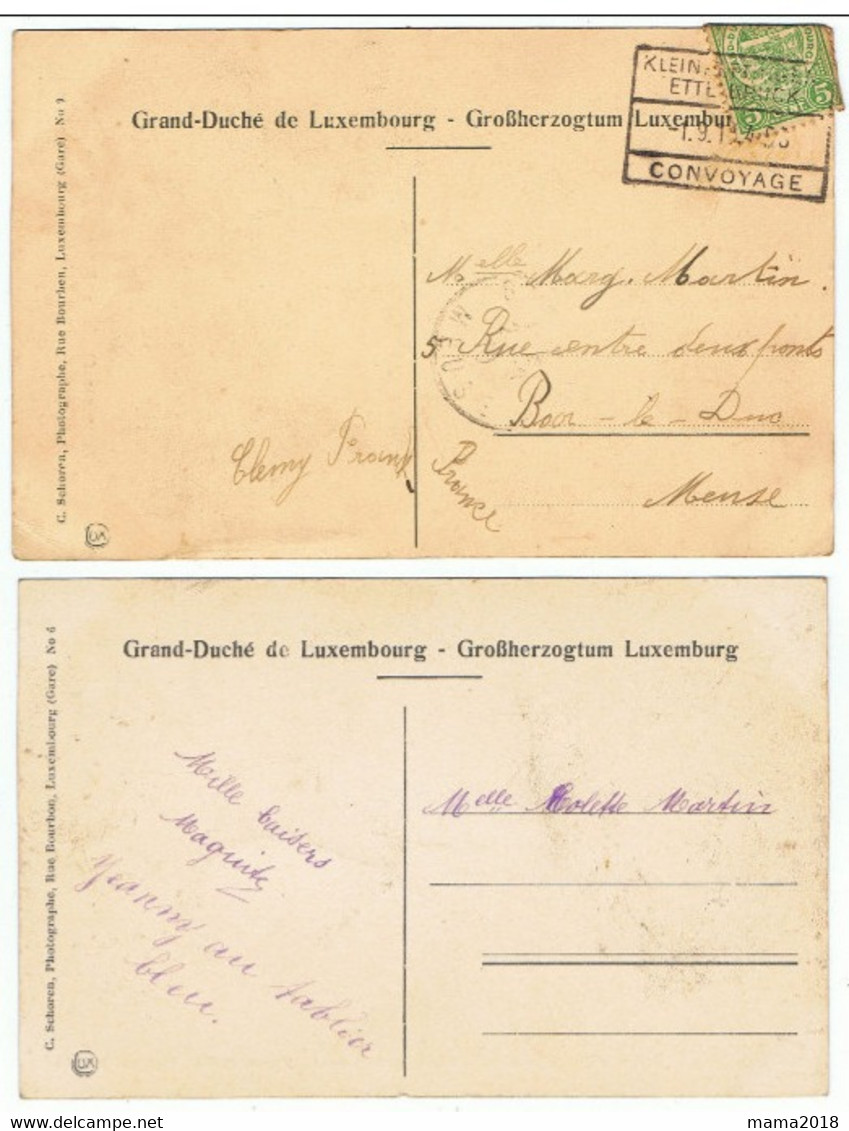 Grand-Duché de Luxembourg - Großherzogtum Luxembur
KLEIN
ETTELBRUCK
-1.9.1
CONVOYAGE
5
5
C. Schoren, Photographe, Rue Bourbon, Luxembourg (Gare) No 9
Melle Marg. Martin.
5 Rue entre deux ponts
Bar-le-Duc
Meuse
France
Clemy Frank
Grand-Duché de Luxembourg - Großherzogtum Luxemburg
C. Schoren, Photographe, Rue Bourbon, Luxembourg (Gare) No 6
Mille baisers
Maguite
Yeanny au tablier
bleu.
Melle Colette Martin
delcampe.net
mama2018